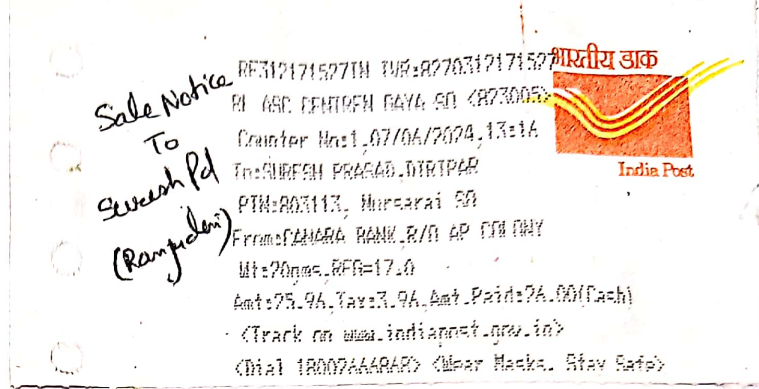 Sale Notice
To
Suresh Pd
(Ranju devi)
RF312171527IN IVR:8270312171527
RL ABC CENTREN GAYA SO <823005>
Counter No:1,07/06/2024,13:16
To:SURESH PRASAD,DIRIPAR
PIN:803113, Nursarai SO
From:CANARA BANK,R/O AP COLONY
Wt:20gms,REG=17.0
Amt:25.96,Tax:3.96,Amt.Paid:26.00(Cash)
<Track on www.indiapost.gov.in>
<Dial 18002666868> <Wear Masks, Stay Safe>
भारतीय डाक
India Post